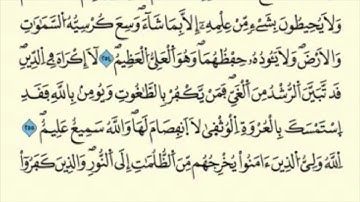 وَلَا يُحِيطُونَ بِشَيْءٍ مِّنْ عِلْمِهِۦٓ إِلَّا بِمَا شَآءَ ۖ وَسِعَ كُرْسِيُّهُ السَّمَٰوَٰتِ
وَالْأَرْضَ ۖ وَلَا يَـُٔودُهُۥ حِفْظُهُمَا ۚ وَهُوَ الْعَلِيُّ الْعَظِيمُ ٢٥٤ لَآ إِكْرَاهَ فِي الدِّينِ ۖ
قَد تَّبَيَّنَ الرُّشْدُ مِنَ الْغَيِّ ۚ فَمَن يَكْفُرْ بِالطَّٰغُوتِ وَيُؤْمِنۢ بِاللَّهِ فَقَدِ
اِسْتَمْسَكَ بِالْعُرْوَةِ الْوُثْقَىٰ لَا اَنفِصَامَ لَهَا ۗ وَاللَّهُ سَمِيعٌ عَلِيمٌ ٢٥٥
اللَّهُ وَلِيُّ الَّذِينَ ءَامَنُواْ يُخْرِجُهُم مِّنَ الظُّلُمَٰتِ إِلَى النُّورِ ۖ وَالَّذِينَ كَفَرُوٓاْ